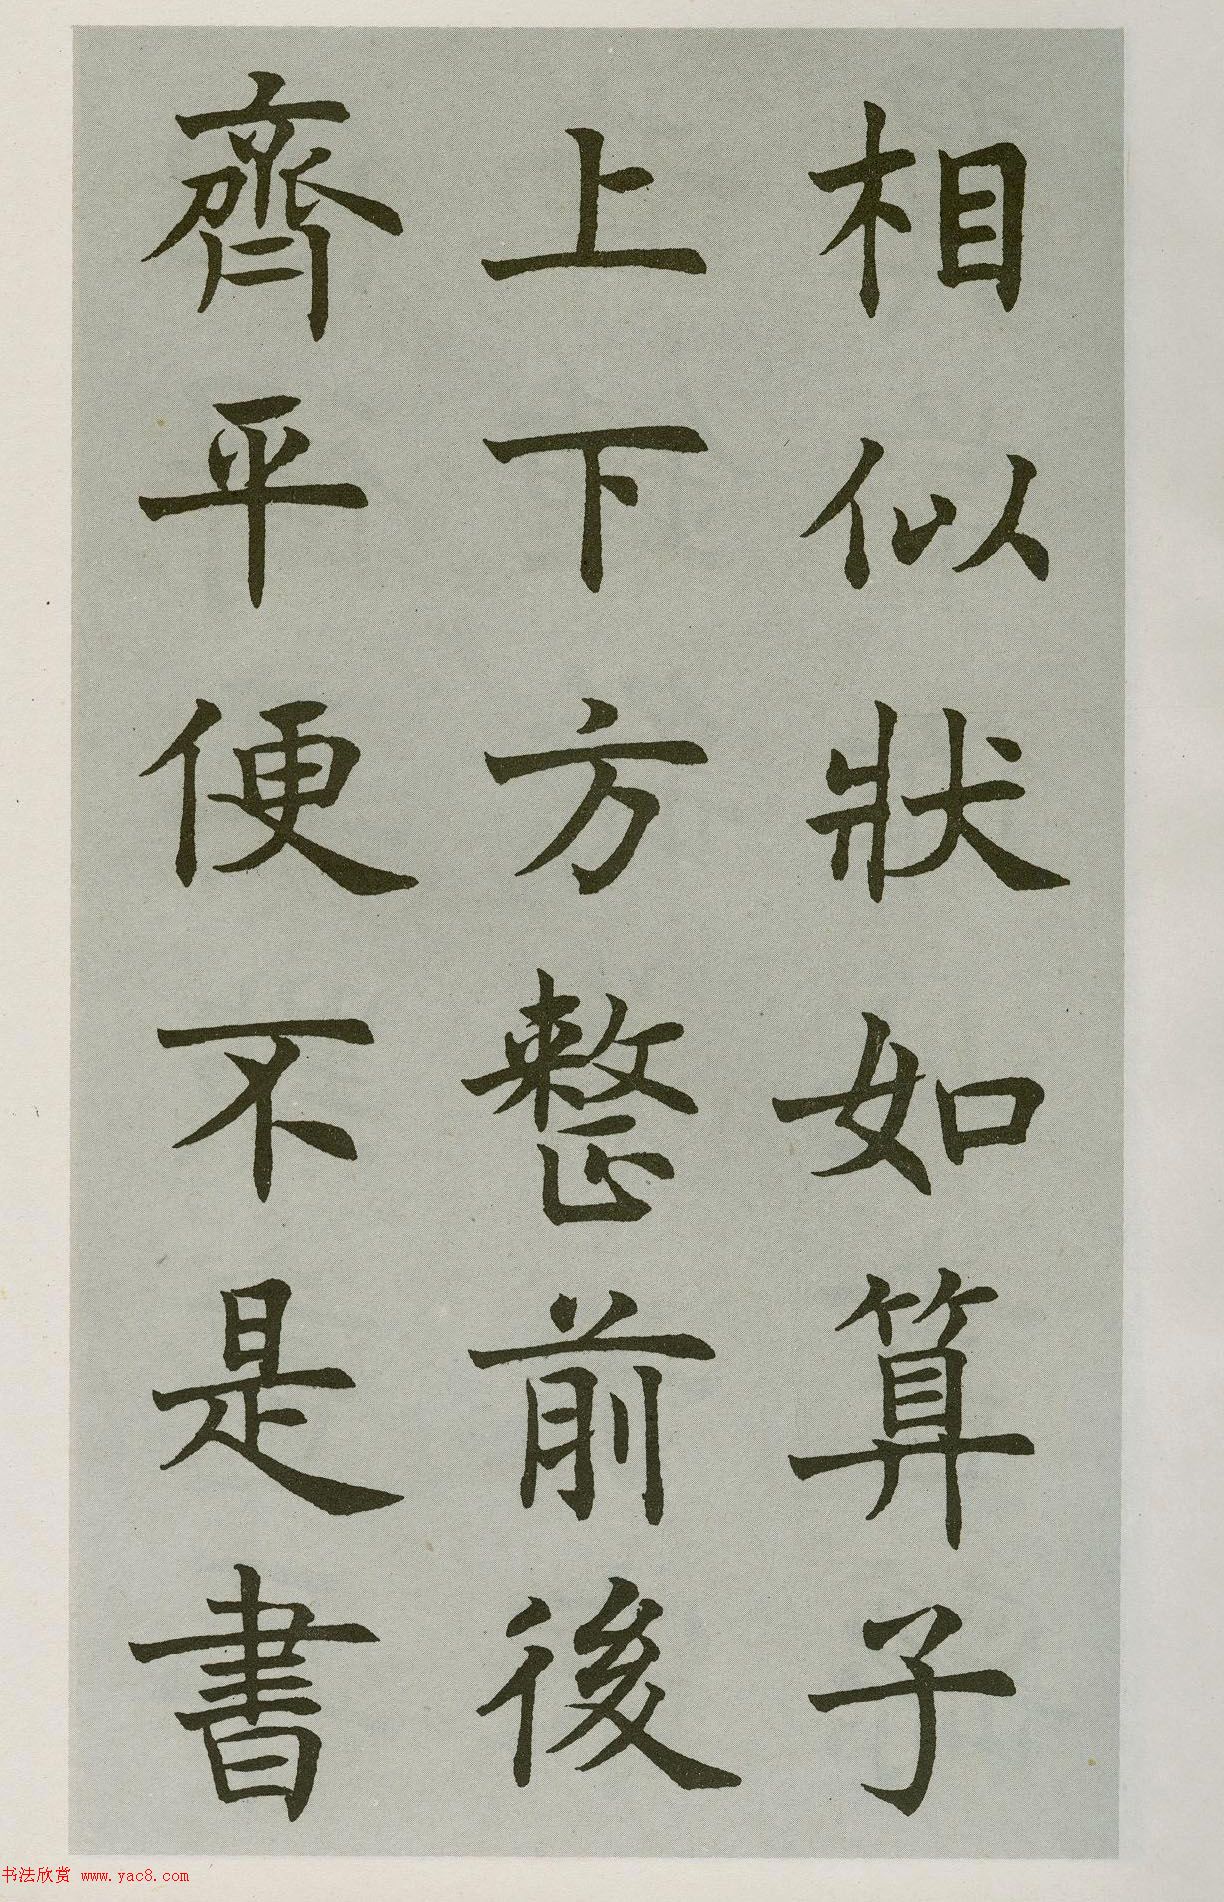 相似狀如算子
上下方整前後
齊平便不是書
书法欣赏 www.yac8.com